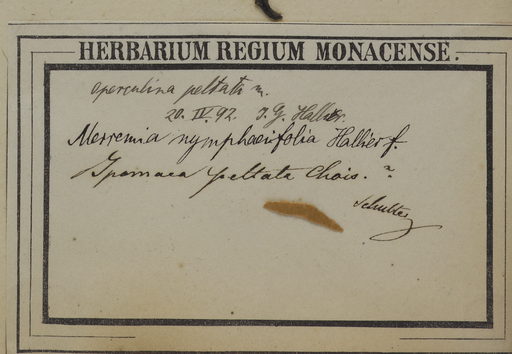 HERBARIUM REGIUM MONACENSE.
operculina peltata m.
20. IV. 92. J. G. Hallier.
Merremia nymphaeifolia Hallier f.
Ipomaea peltata Chois. ?
Schultes